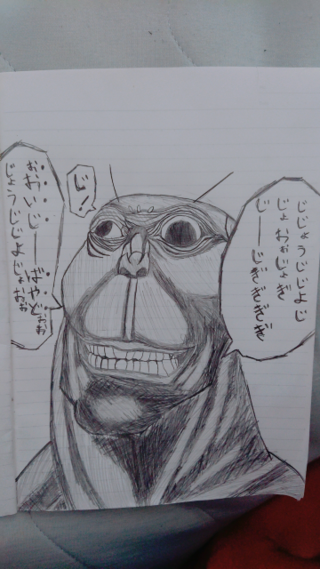 じじょうじじよじ
じょおぉじょぎ
じ――じぎぎぎぎ
じ!
おおいじ――ばやどぉぉ
じょうじじよじょおぉ